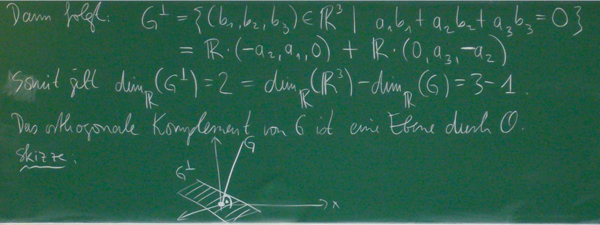 Dann folgt: G^⊥ = {(b₁, b₂, b₃) ∈ ℝ³ | a₁b₁ + a₂b₂ + a₃b₃ = 0}
= ℝ·(-a₂, a₁, 0) + ℝ·(0, a₃, -a₂)
Somit gilt dim_ℝ(G^⊥) = 2 = dim_ℝ(ℝ³) - dim_ℝ(G) = 3-1.
Das orthogonale Komplement von G ist eine Ebene durch O.
Skizze:
G
G^⊥
x